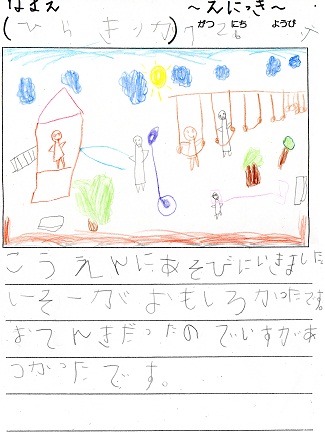 なまえ ～えにっき～
(ひらきりか) 7がつ 26にち ようび
こうえんにあそびにいきました
しーそーがおもしろかったです。
おてんきだったのでいすがあ
つかったです。